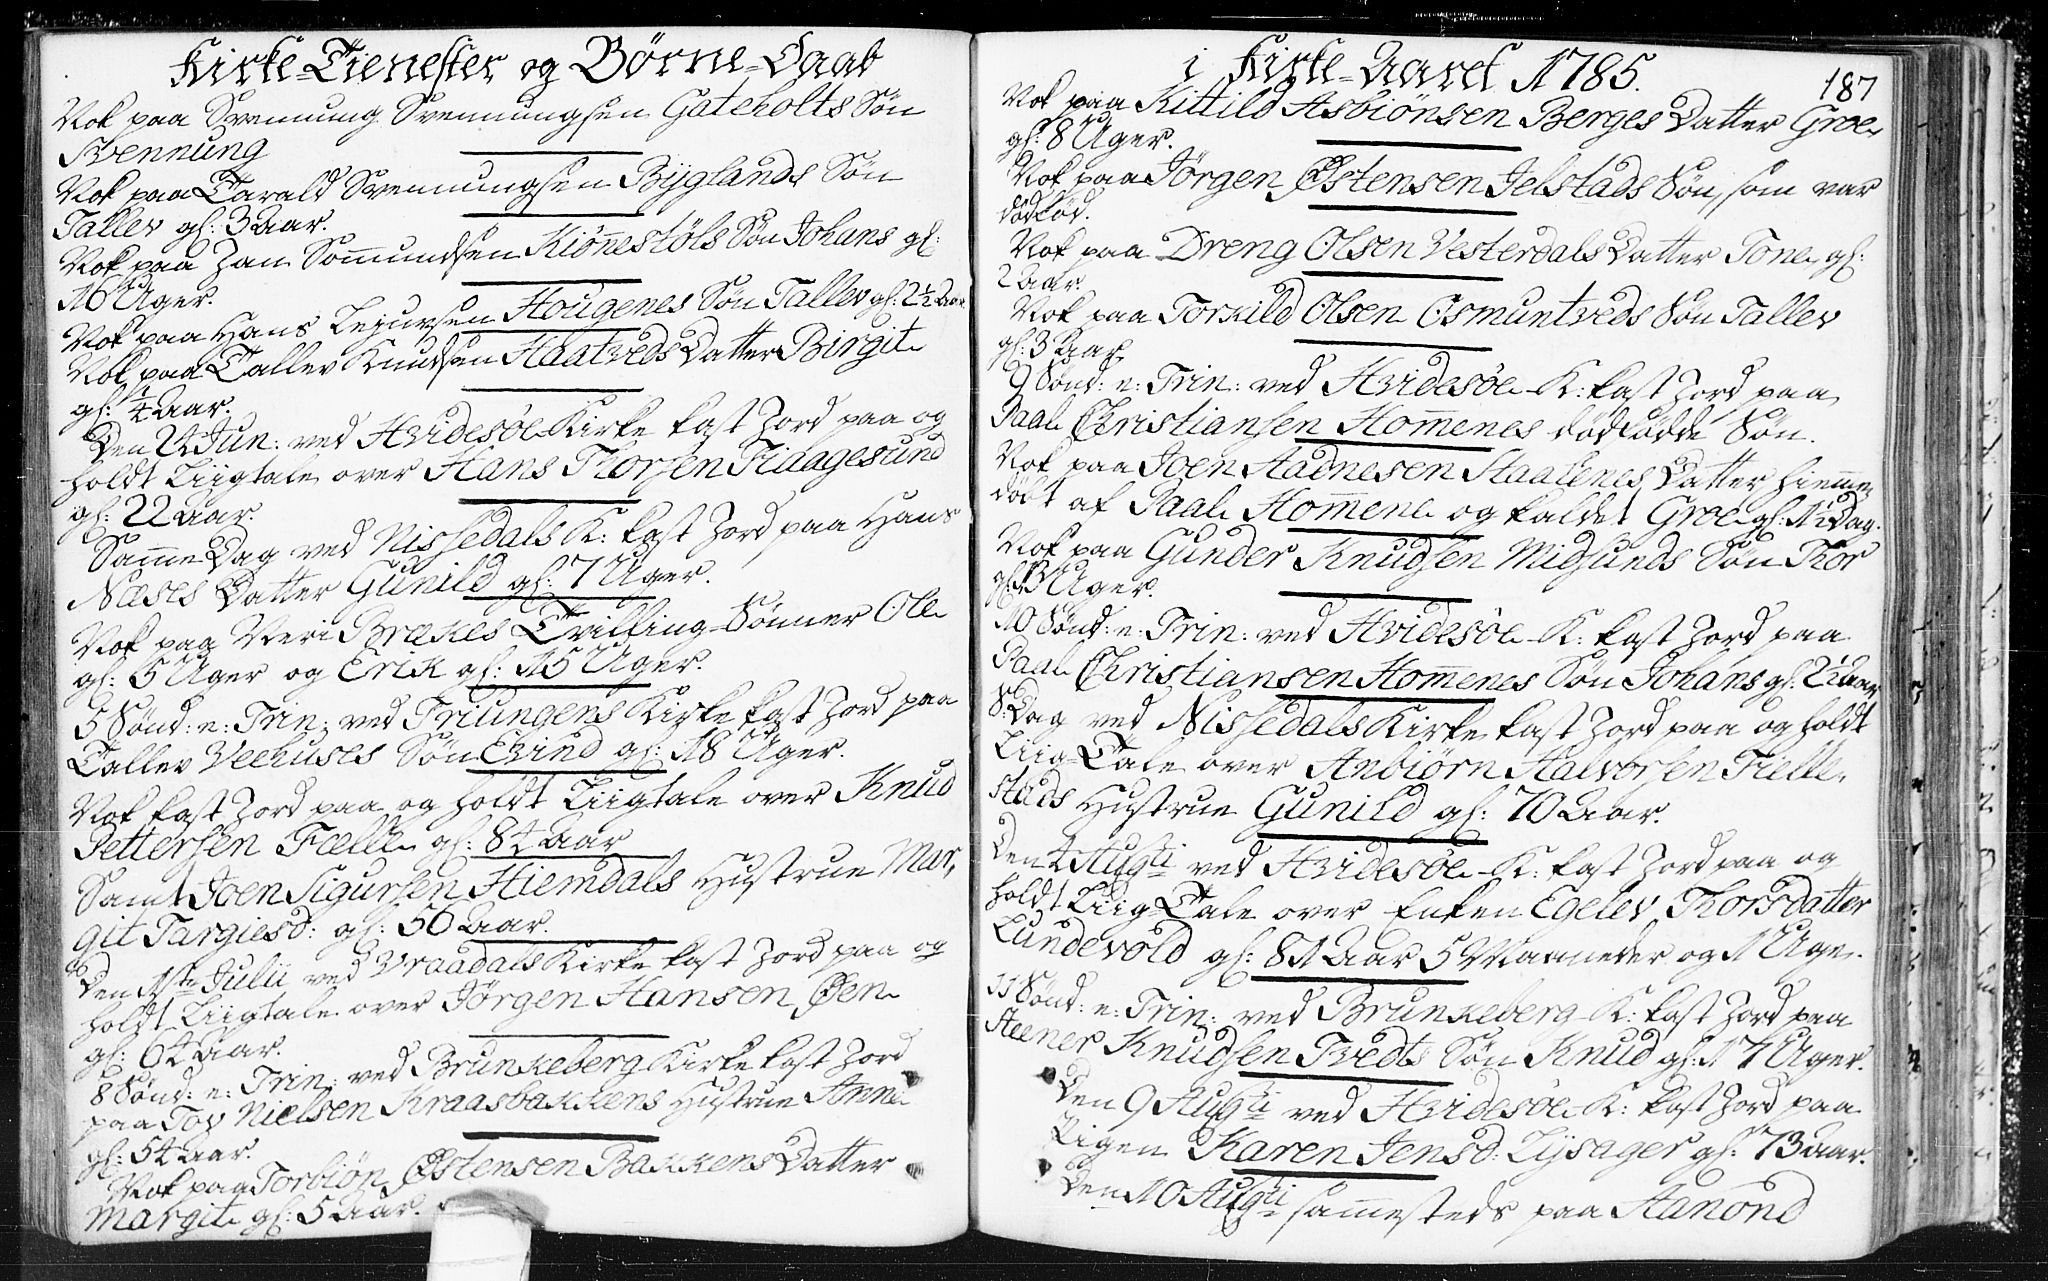 Kirke-Tienester og Børne-Daab
Nok paa Svennung Svennungsen Gateholts Søn
Svennung
Nok paa Tarald Svennungsen Bÿglands Søn
Tallev gl: 3 Aar.
Nok paa Jan Somundsen Kiønestøls Søn Johans gl:
16 Uger.
Nok paa Hans Lejursen Hougenes Søn Tallev gl: 2½ Aar
Nok paa Tallev Knudsen Haatveds Datter Birgit
gl: ¼ Aar.
Den 24 Jun: ved Hvidesøe Kirke kast Jord paa og
holdt Liigtale over Hans Thorsen Fidagesund
gl: 22 Aar.
Same Dag ved Nissedals K: kast Jord paa Hans
Næses Datter Gunild gl: 7 Uger.
Nok paa Veri Brekes Tvilling-Sønner Ole
gl: 5 Uger og Erik gl: 15 Uger.
5 Sønd: e: Trin: ved Triungens Kirke kast Jord paa
Tallev Veehuses Søn Evind gl: 18 Uger.
Nok kast Jord paa og holdt Liigtale over Knud
Pettersen Fælle gl: 84 Aar
Samt Joen Sigursen Hiemdals Hustrue Mar,
git Targiesd: gl: 56 Aar.
Den 1ste Julii ved Vraadals Kirke kast Jord paa og
holdt Liigtale over Jørgen Hansen Øen
gl: 64 Aar.
8 Sønd: e: Trin: ved Brunkeberg Kirke kast Jord
paa Tov Nielsen Kraasbakkens Hustrue Anne
gl: 54 Aar.
Nok paa Torbiøn Østensen Bakkens Datter
Margit gl: 5 Aar.
i Kirke-Aaret 1785.
187
Nok paa Kittild Asbiønsen Berges Datter Groe
gl: 8 Uger.
Nok paa Jørgen Østensen Jelstads Søn, som var
dødfød.
Nok paa Dreng Olsen Vesterdals Datter Tone gl:
2 Aar.
Nok paa Torkild Olsen Osmuntveds Søn Tallev
gl: 3 Aar
9 Sønd: e: Trin: ved Hvidesøe K: kast Jord paa
Paal Christiansen Homenes dødfødde Søn.
Nok paa Joen Aadnesen Staalenes Datter hieme
døbt af Paal Homene og kaldet Groe gl: 1½ Dag.
Nok paa Gunder Knudsen Midsunds Søn Thor
gl: 13 Uger.
10 Sønd: e: Trin: ved Hvidesøe K: kast Jord paa
Paal Christiansen Homenes Søn Johans gl: 2½ Aar
S: Dag ved Nissedals Kirke kast Jord paa og holdt
Liig-Tale over Anbiørn Halvorsen Fielle,
stads Hustrue Gunild gl: 70 Aar.
Den 4 Augti ved Hvidesøe K: kast Jord paa og
holdt Liig-Tale over Enken Egelev Thorsdatter
Lundevold gl: 81 Aar 5 Maaneder og 1 Uge.
11 Sønd: e: Trin: ved Brunkeberg K: kast Jord paa
Steener Knudsen Tvedts Søn Knud gl: 14 Uger.
Den 9 Augti ved Hvidesøe K: kast Jord paa
Pigen Karen Jensd: Lÿsager gl: 73 Aar.
Den 10 Augti samesteds paa Aanond